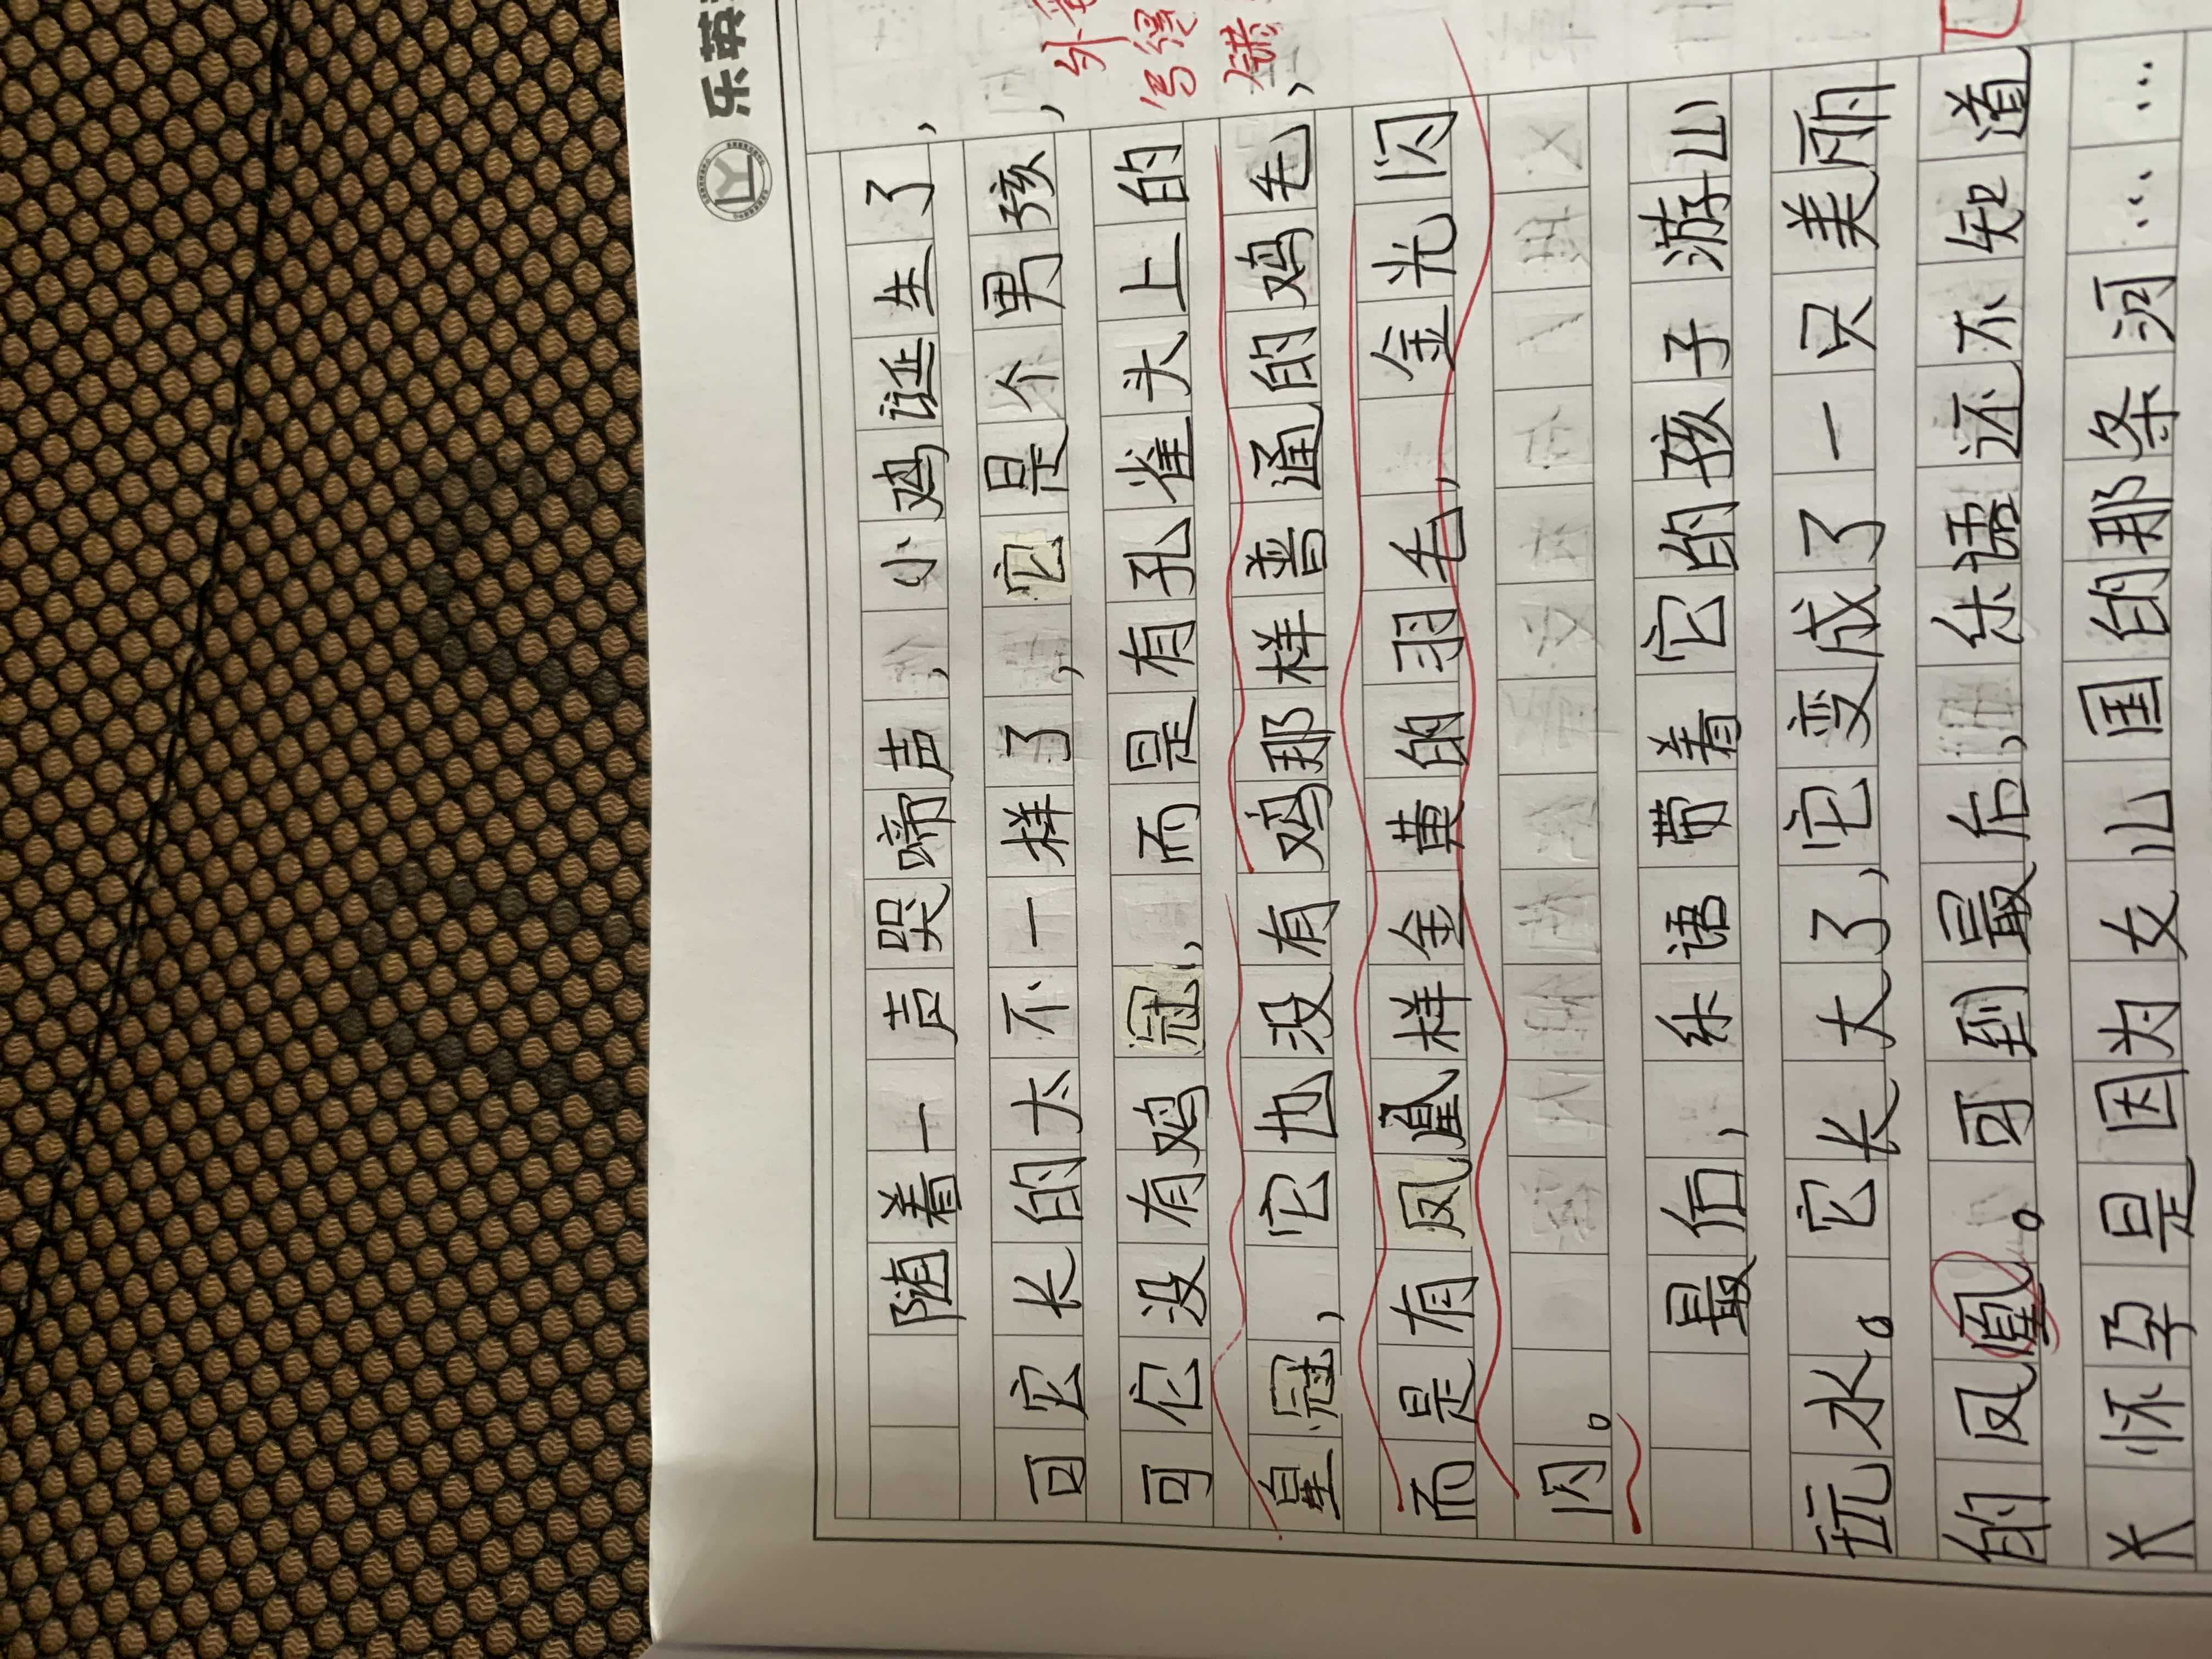 乐英
外
写得
错
随着一声哭啼声,小鸡诞生了,
回它长的大不一样了,它是个男孩,
可它没有鸡冠,而是有孔雀头上的
皇冠,它也没有鸡那样普通的鸡毛,
而是有凤凰样金黄的羽毛,金光闪
闪。
最后,乐语带着它的孩子游山
玩水。它长大了,它变成了一只美丽
的凤凰。可到最后,乐语还不知道
怀孕是因为女儿国的那条河……